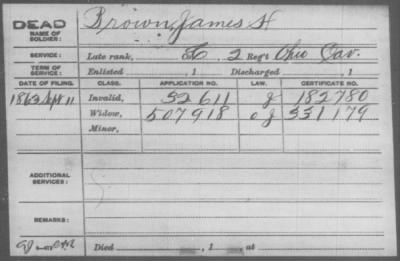 DEAD
NAME OF SOLDIER: Brown, James H
SERVICE: Late rank, 2 Reg't Ohio Cav.
TERM OF SERVICE: Enlisted , 1 Discharged , 1
DATE OF FILING. CLASS. APPLICATION NO. LAW. CERTIFICATE NO.
Invalid, 32611 182780
Widow, 507918 331179
Minor,
ADDITIONAL SERVICES:
REMARKS:
Died , 1 , at